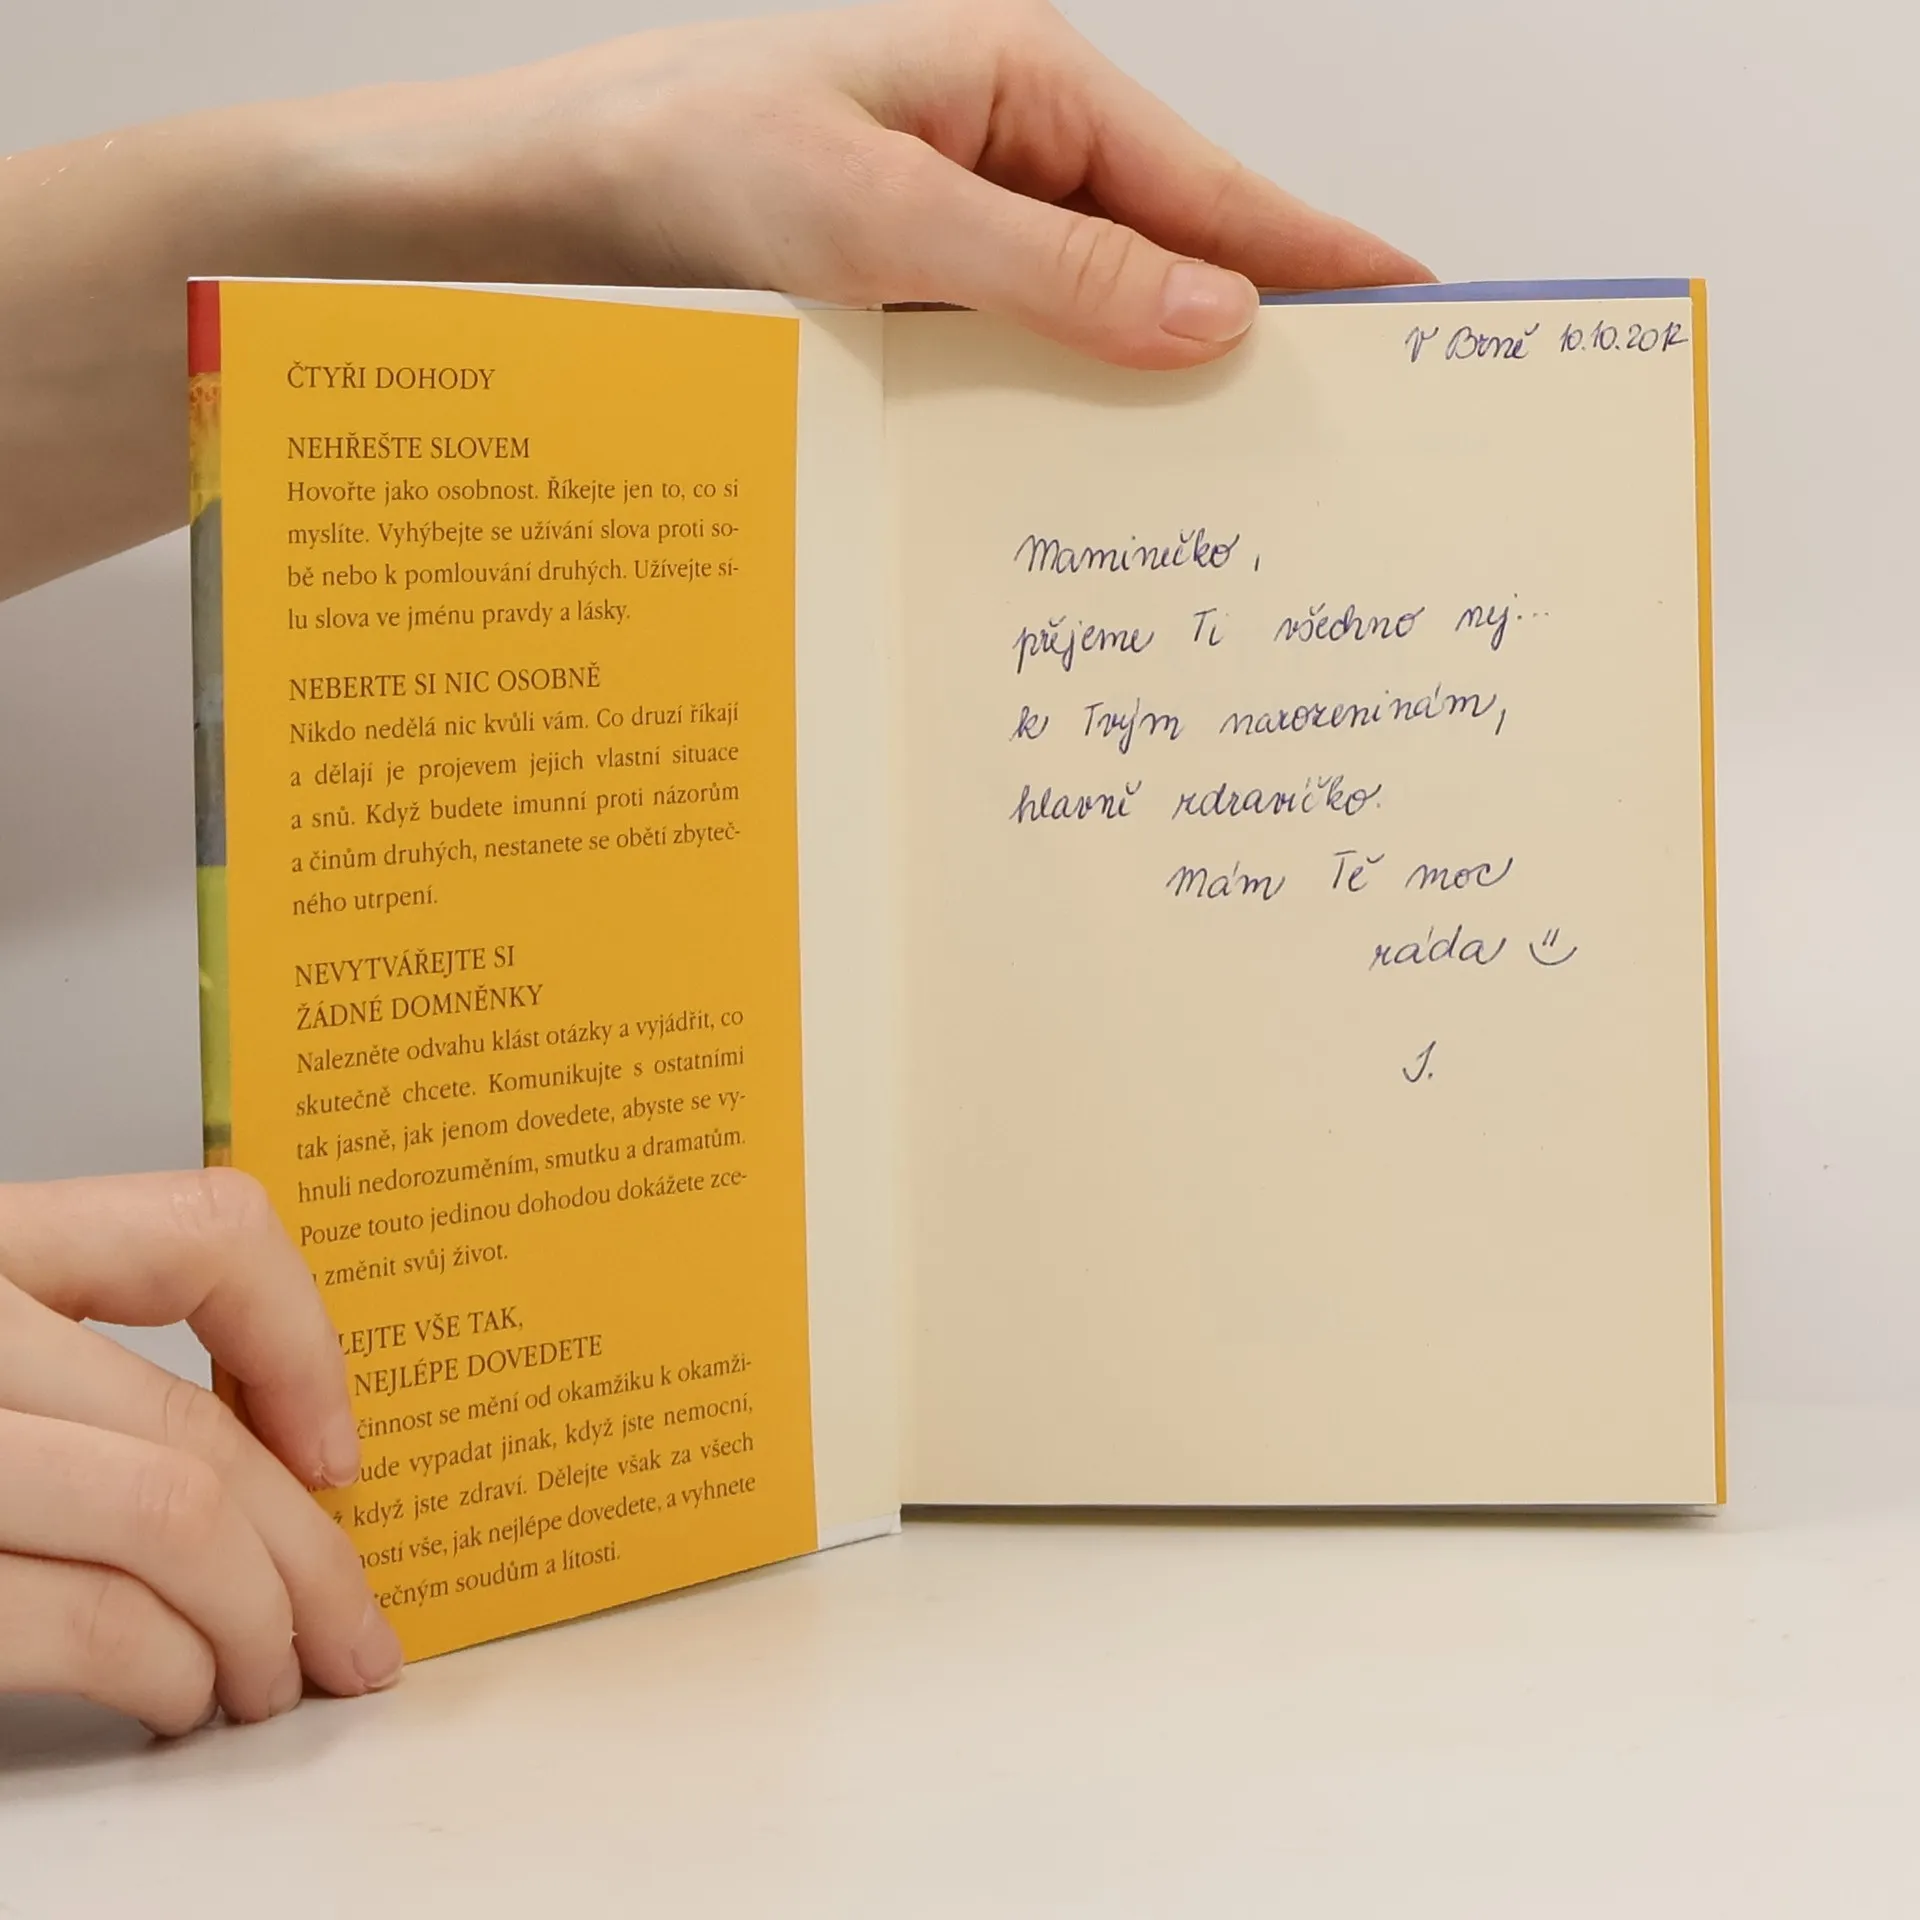 ČTYŘI DOHODY
NEHŘEŠTE SLOVEM
Hovořte jako osobnost. Říkejte jen to, co si
myslíte. Vyhýbejte se užívání slova proti so-
bě nebo k pomlouvání druhých. Užívejte sí-
lu slova ve jménu pravdy a lásky.
NEBERTE SI NIC OSOBNĚ
Nikdo nedělá nic kvůli vám. Co druzí říkají
a dělají je projevem jejich vlastní situace
a snů. Když budete imunní proti názorům
a činům druhých, nestanete se obětí zbyteč-
ného utrpení.
NEVYTVÁŘEJTE SI
ŽÁDNÉ DOMNĚNKY
Nalezněte odvahu klást otázky a vyjádřit, co
skutečně chcete. Komunikujte s ostatními
tak jasně, jak jenom dovedete, abyste se vy-
hnuli nedorozuměním, smutku a dramatům.
Pouze touto jedinou dohodou dokážete zce-
změnit svůj život.
LEJTE VŠE TAK,
NEJLÉPE DOVEDETE
činnost se mění od okamžiku k okamži-
ude vypadat jinak, když jste nemocní,
ž když jste zdraví. Dělejte však za všech
ností vše, jak nejlépe dovedete, a vyhnete
tečným soudům a lítosti.
V Brně 10.10.2012
Maminečko,
přejeme Ti všechno nej...
k Tvým narozeninám,
hlavně zdravíčko.
Mám Tě moc
ráda
J.